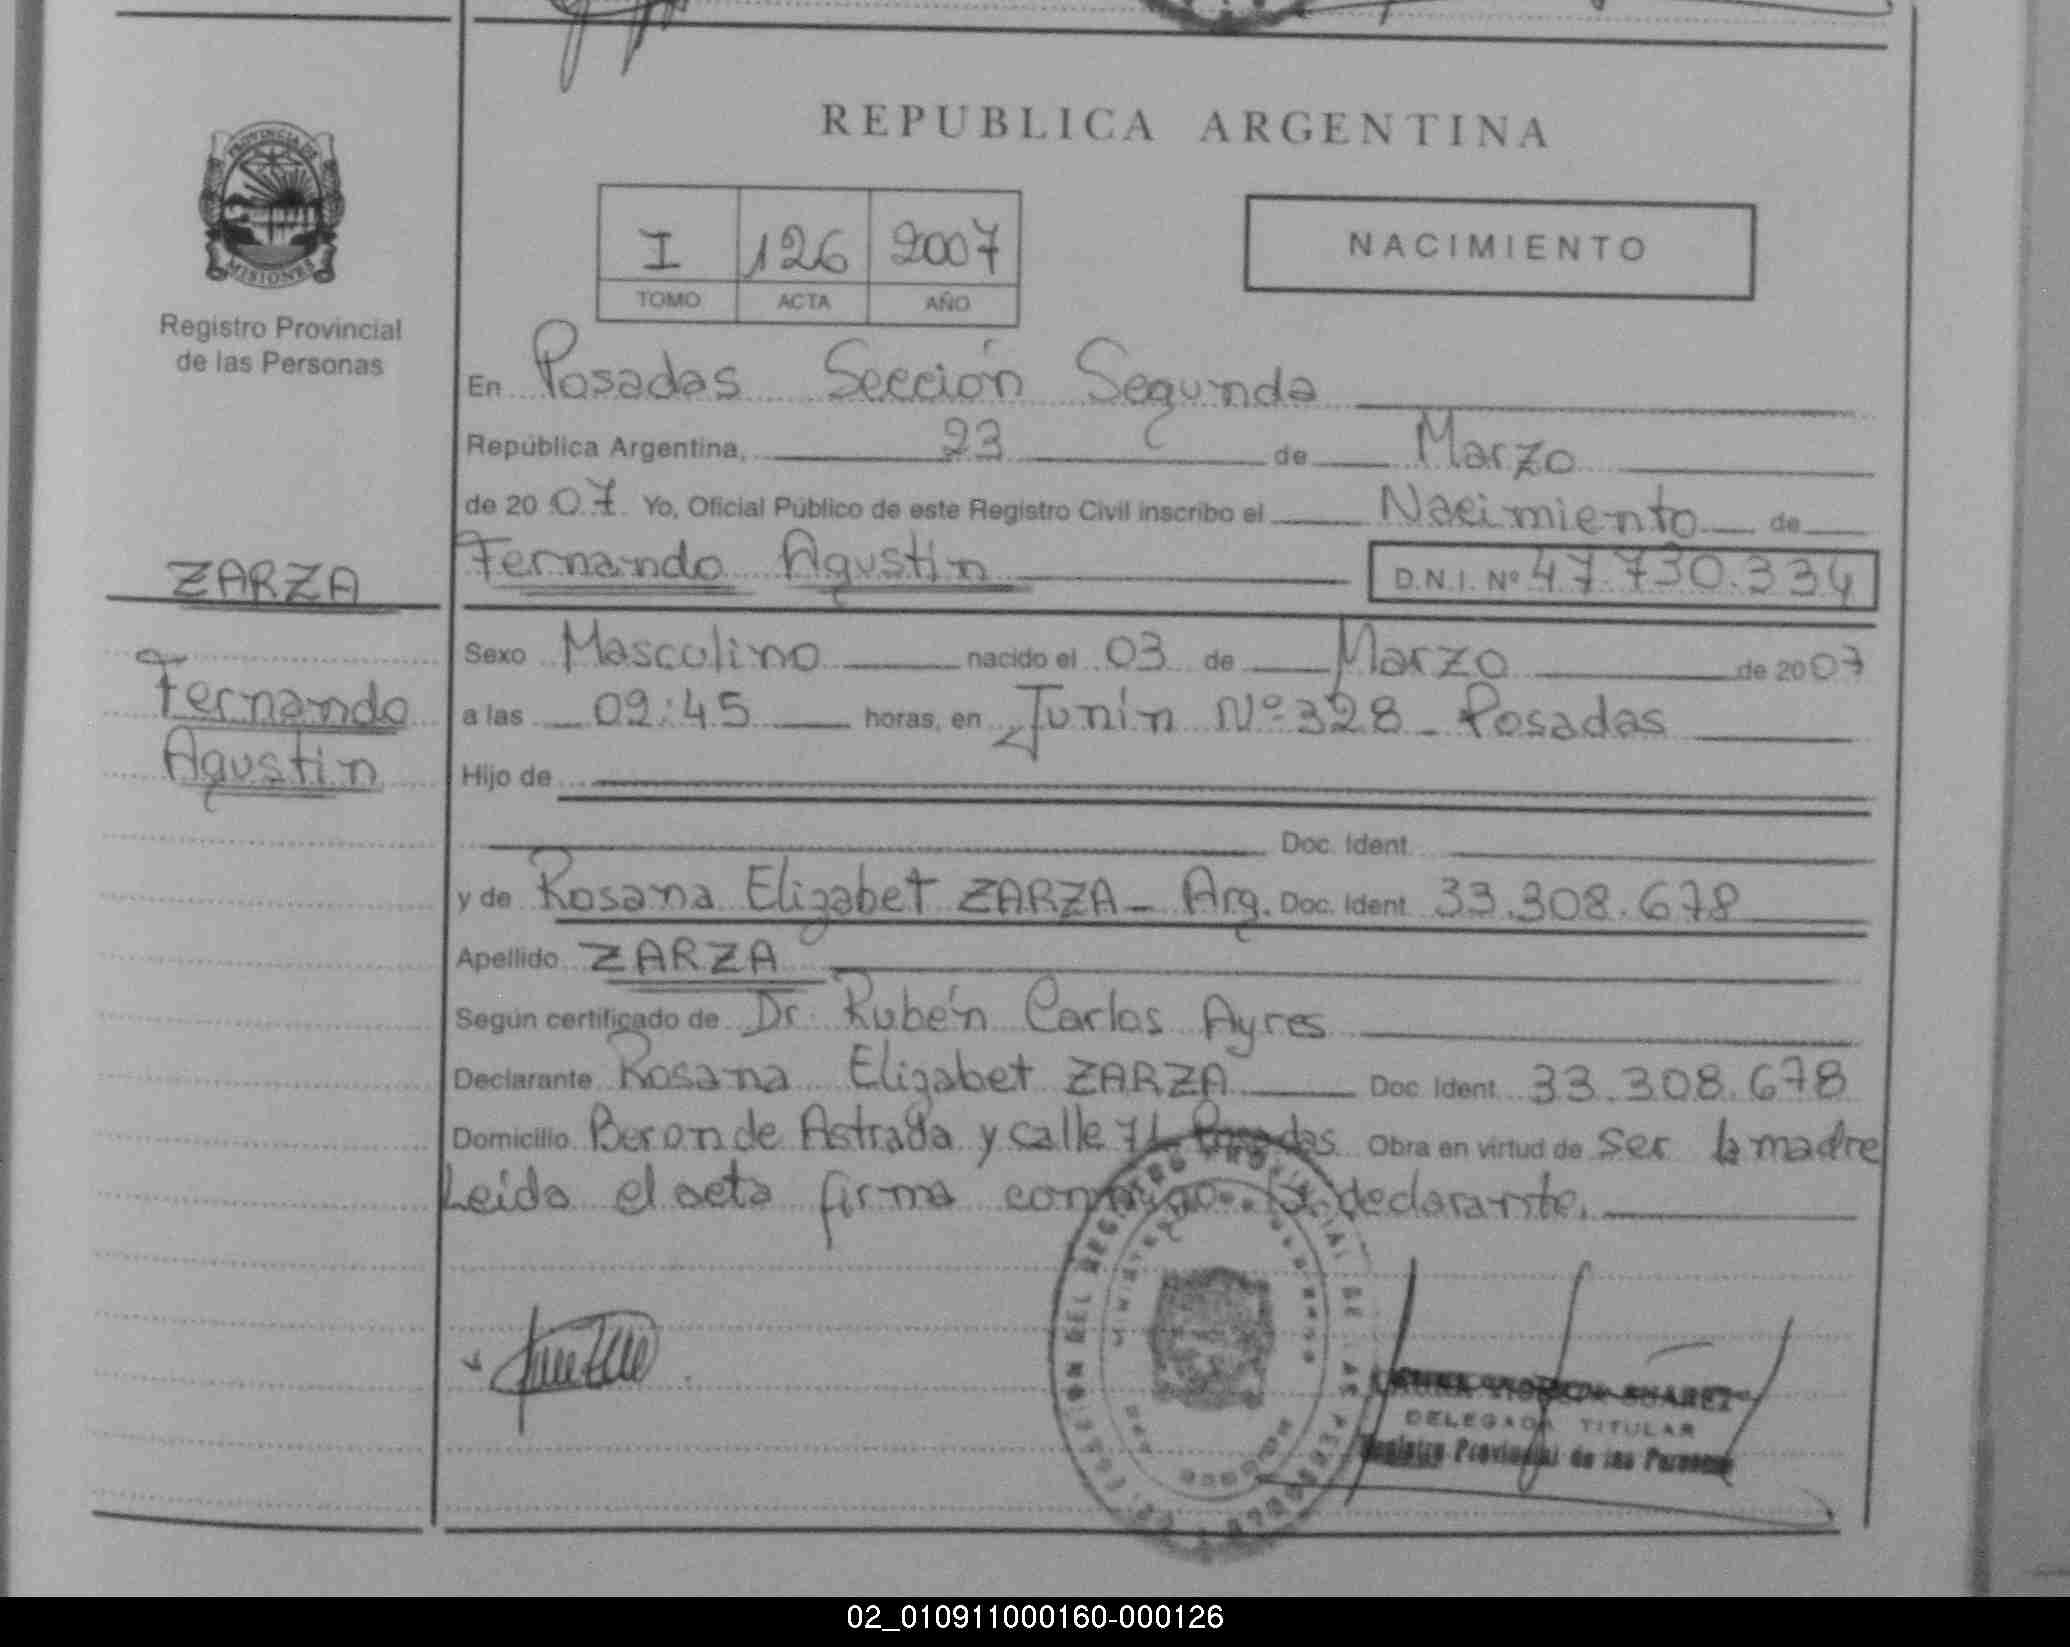 REPUBLICA ARGENTINA
PROVINCIA DE
MISIONES
Registro Provincial
de las Personas
I 126 2007
TOMO ACTA AÑO
NACIMIENTO
En Posadas Sección Segunda
República Argentina, 23 de Marzo
de 2007 Yo, Oficial Público de este Registro Civil inscribo el Nacimiento de
Fernando Agustin D.N.I. Nº 47.730.334
ZARZA
Fernando
Agustin
Sexo Masculino nacido el 03 de Marzo de 2007
a las 09:45 horas, en Junín Nº 328 - Posadas
Hijo de
Doc. Ident.
y de Rosana Elizabet ZARZA - Arg. Doc. Ident. 33.308.678
Apellido ZARZA
Según certificado de Dr. Rubén Carlos Ayres
Declarante Rosana Elizabet ZARZA Doc. Ident. 33.308.678
Domicilio Beron de Astrada y calle Posadas Obra en virtud de ser la madre
Leida el acta firma conmigo la declarante.
SUAREZ
DELEGADA TITULAR
Registro Provincial de las Personas
02_010911000160-000126